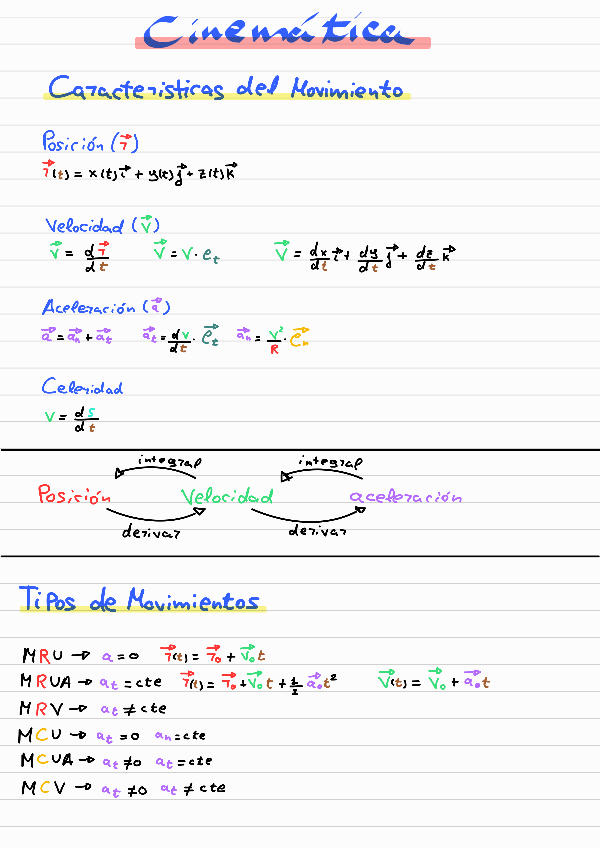 Cinemática
Características del Movimiento
Posición (r⃗)
r⃗(t) = x(t)i⃗ + y(t)j⃗ + z(t)k⃗
Velocidad (v⃗)
v⃗ = dr⃗/dt   v⃗ = v · e_t   v⃗ = dx/dt i⃗ + dy/dt j⃗ + dz/dt k⃗
Aceleración (a⃗)
a⃗ = a⃗_n + a⃗_t   a⃗_t = dv/dt · e⃗_t   a⃗_n = v²/R · e⃗_n
Celeridad
v = ds/dt
integral   integral
Posición   Velocidad   aceleración
derivar   derivar
Tipos de Movimientos
MRU → a = 0   r⃗(t) = r⃗_0 + v⃗_0 t
MRUA → a_t = cte   r⃗(t) = r⃗_0 + v⃗_0 t + 1/2 a⃗_0 t²   v⃗(t) = v⃗_0 + a⃗_0 t
MRV → a_t ≠ cte
MCU → a_t = 0   a_n = cte
MCUA → a_t ≠ 0   a_t = cte
MCV → a_t ≠ 0   a_t ≠ cte